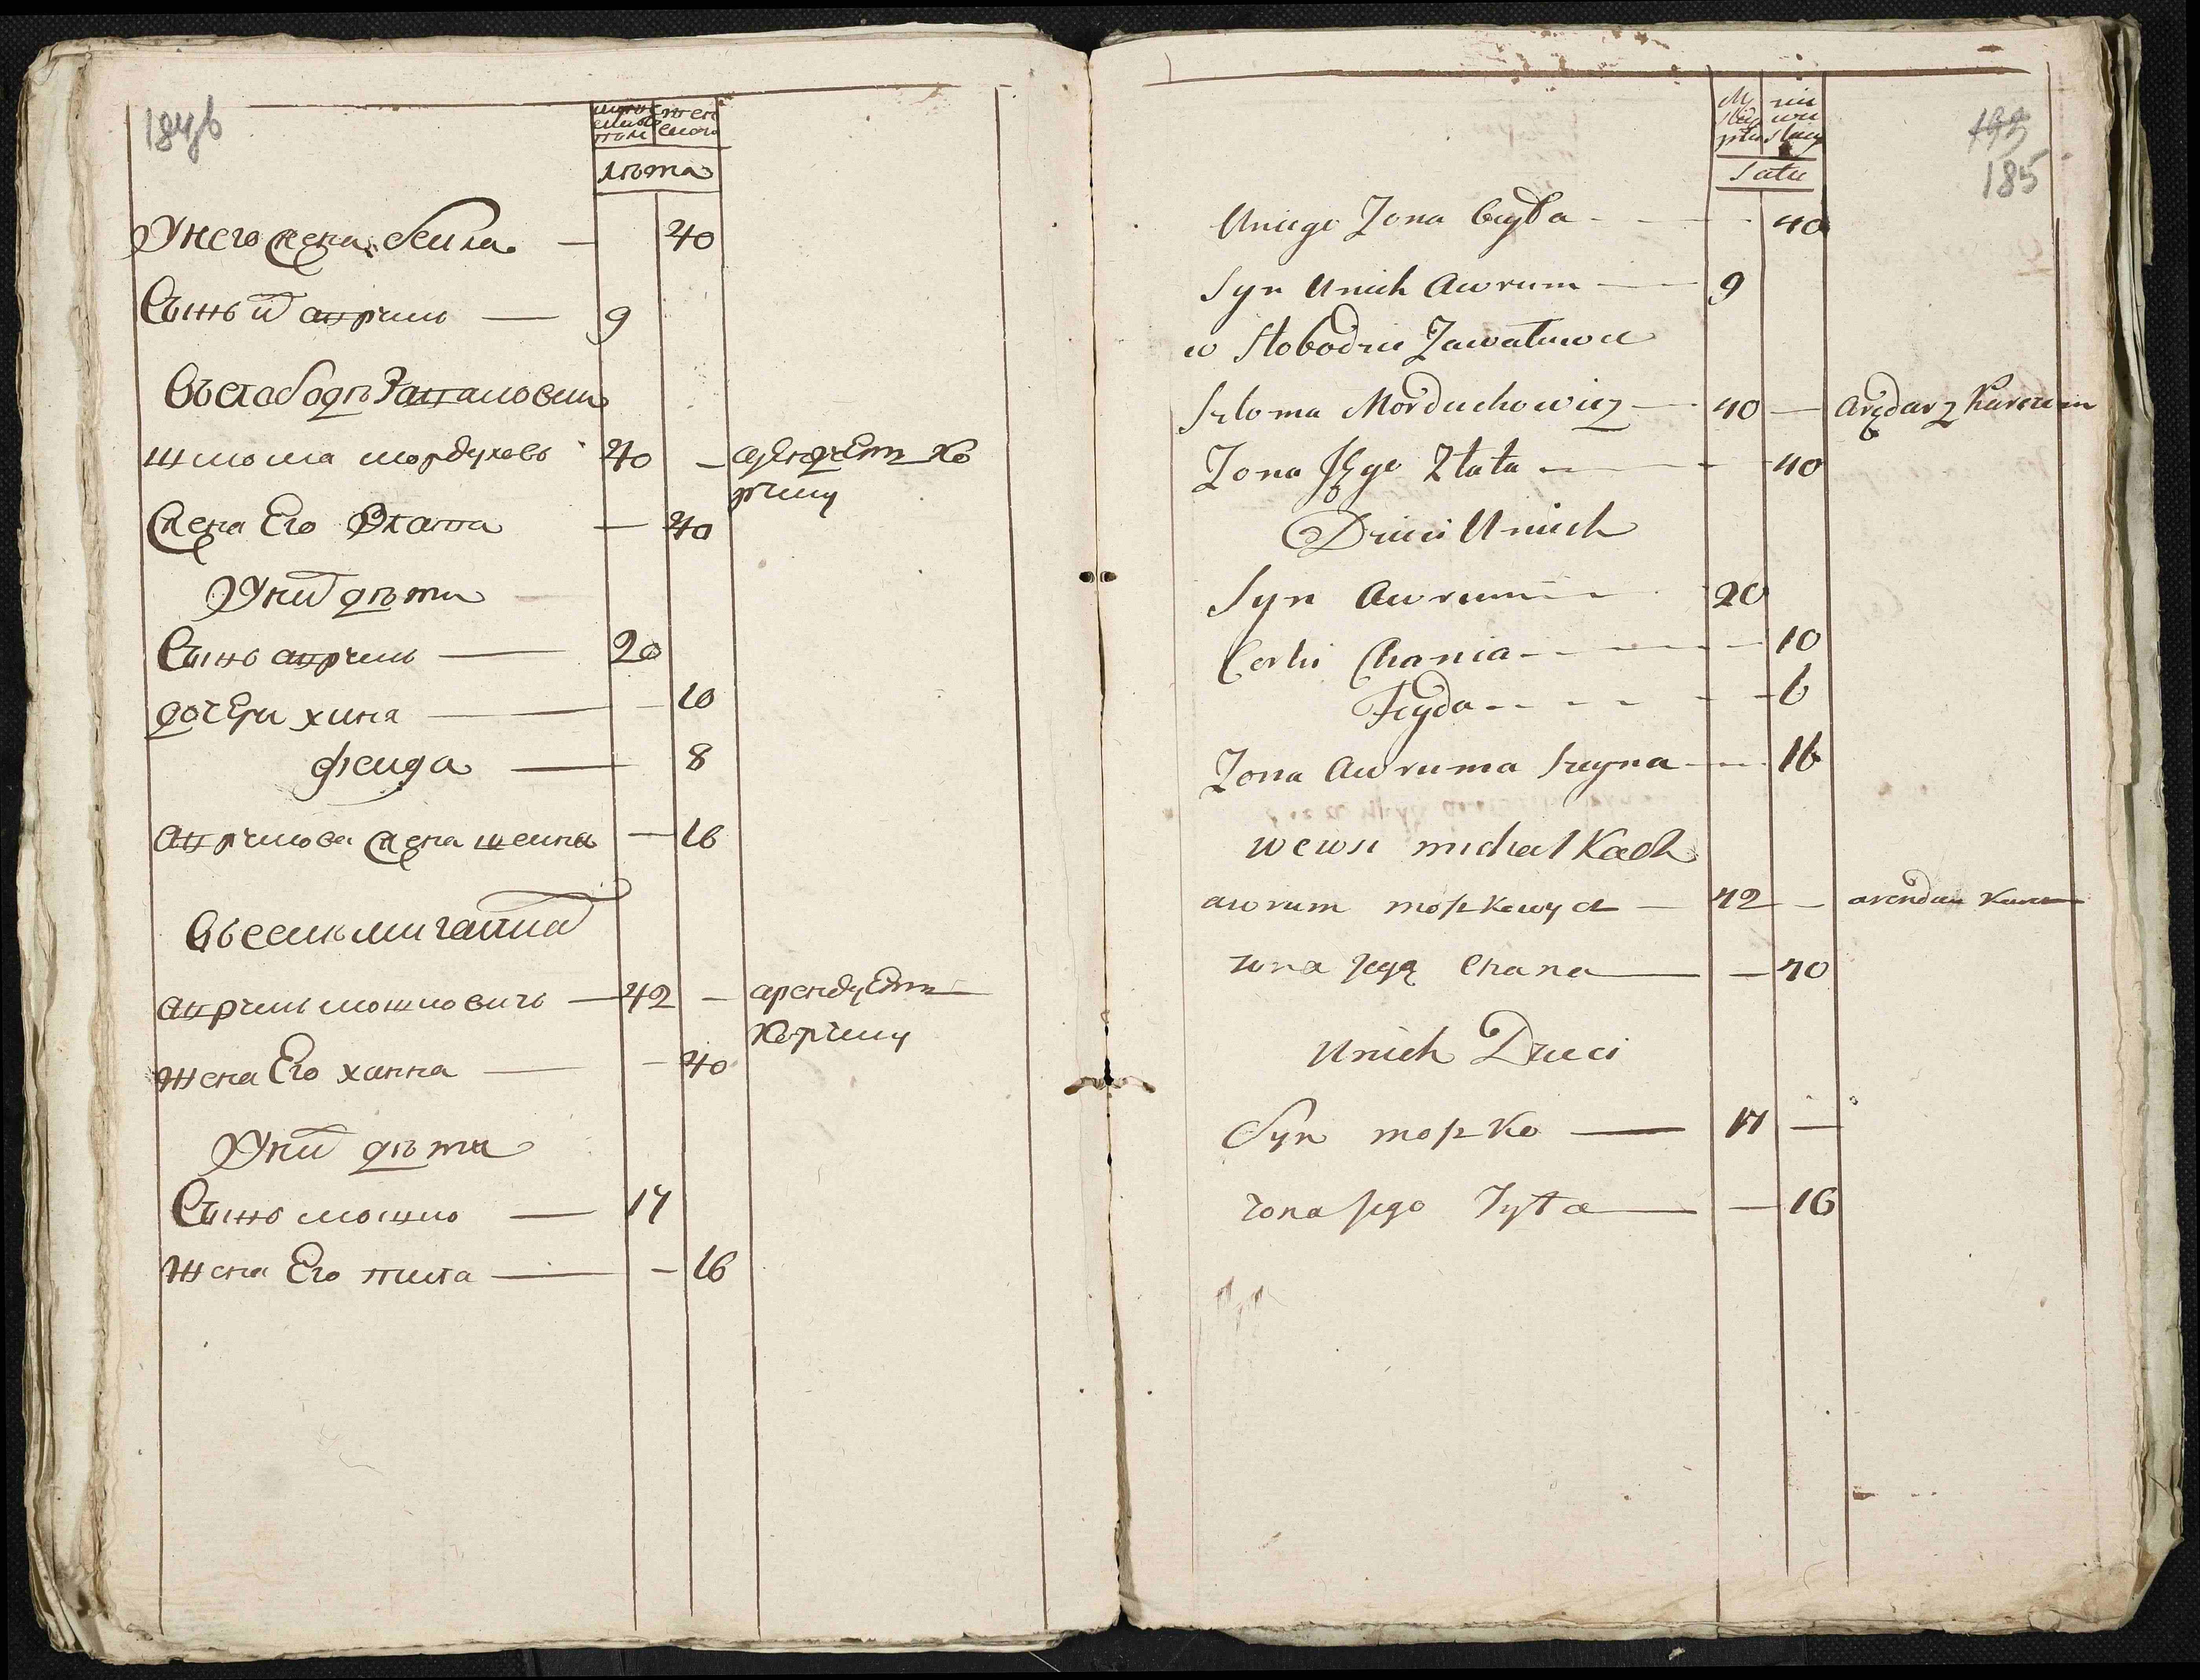 184об
мужеска
пола
женского
лѣта
У него жена беила — 40
Сынъ их аврумъ — 9
Въ слободѣ Заваловки
шлома мордуховъ 40 — арендуетъ ко
рчму
жена Его Злата — 40
У них дѣти
Сынъ аврумъ — 20
дочери хина — 10
феида — 8
аврумова жена шеина — 16
Въ селѣ михалках
аврумъ мошковичъ — 42 — арендуетъ
корчму
жена Его ханна — 40
У них дѣти
Сынъ мошко — 17
жена Его тила — 16
199
185
Lata
Uniego Zona Beyła 40
Syn Unich Awrum 9
w Słobodzie Zawałuwce
Szloma Morduchowicz 40 — Arędarz Karczm
Zona Jego Złata 40
Dzieci Unich
Syn Awrum 20
Corki Chania 10
Feyda 6
Zona Awruma Szeyna 16
we wsi michałkach
awrum moszkowycz 42 — arendarz
zona jego Chana 40
Unich Dzieci
Syn moszko — 17 —
zona jego Tyła — 16